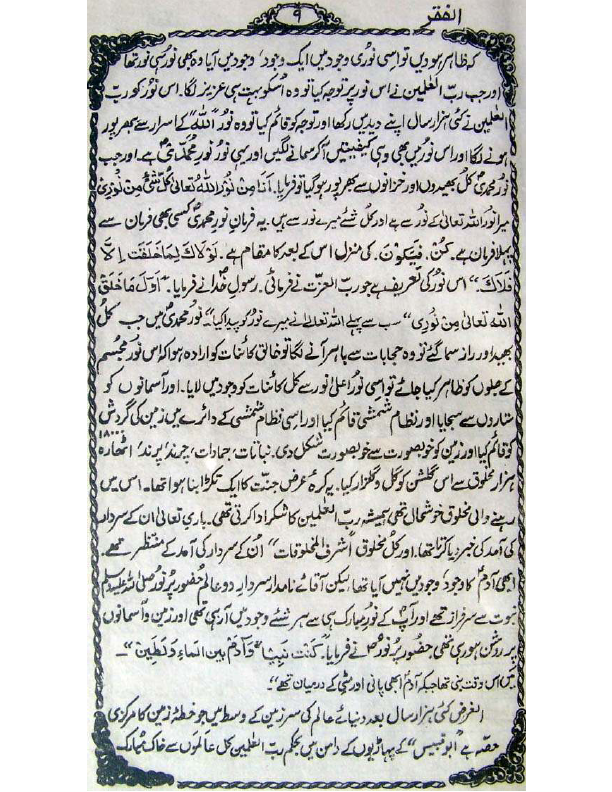 الفقر
۹
کہ ظاہر ہو دیں تو اسی نوری وجود میں ایک وجود، وجود میں آیا وہ بھی نور ہی نور تھا
اور جب ربّ العٰلمین نے اس نور پر توجہ کیا تو وہ اُسکو بہت ہی عزیز لگا۔ اس نور کو ربّ
العٰلمین نے کئی ہزار سال اپنے دید میں رکھا اور توجہ کو قائم کیا تو وہ نور "اللہ" کے اسرار سے بھرپور
ہونے لگا اور اس نور میں بھی وہی کیفیتیں آ کر سمانے لگیں اور یہی نور نورِ محمدیؐ ہے۔ اور جب
نورِ محمدیؐ کل بھیدوں اور خزانوں سے بھرپور ہو گیا تو فرمایا۔ اَنَا مِنْ نُوْرِ اللہُ تَعَالیٰ کُلُّ شَیْءٍ مِنْ نُوْرِیْ
میرا نور اللہ تعالیٰ کے نور سے ہے اور کل شئے میرے نور سے ہیں۔ یہ فرمان نورِ محمدیؐ کسی بھی فرمان سے
پہلا فرمان ہے۔ کُنْ۔ فَیَکُوْنَ۔ کی منزل اس کے بعد کا مقام ہے۔ لَوْلَاکَ لِمَا خَلَقْتَ اِلَّا
فَلَاکَ۔" اس نور کی تعریف ہے جو ربّ العزت نے فرمائی۔ رسولِ خدا نے فرمایا۔ "اَوَّلَ مَا خَلَقَ
اللہ تعالیٰ مِنْ نُوْرِی" سب سے پہلے اللہ تعالےٰ نے میرے نور کو پیدا کیا۔" نورِ محمدیؐ میں جب کل
بھید اور راز سما گئے تو وہ حجابات سے باہر آنے لگا تو خالق کائنات کو ارادہ ہوا کہ اس نورِ مجسّم
کے جلوں کو ظاہر کیا جائے تو اسی نور اعلیٰ نور سے کل کائنات کو وجود میں لایا۔ اور آسمانوں کو
ستاروں سے سجایا اور نظام شمشی قائم کیا اور اسی نظام شمشی کے دائرے میں زمین کی گردش
کو قائم کیا اور زمین کو خوبصورت سے خوبصورت شکل دی۔ نباتات، جمادات، چرند، پرند، اٹھارہ ۱۸۰۰۰
ہزار مخلوق سے اس گلشن کو گل و گلزار کیا۔ یہ کرۂ عرض جنّت کا ایک ٹکڑا بنا ہوا تھا۔ اس میں
رہنے والی مخلوق خوشحال تھی ہمیشہ ربّ العٰلمین کا شکر ادا کرتی تھی۔ باری تعالیٰ ان کے سردار
کی آمد کی خبر دیا کرتا تھا۔ اور کل مخلوق "اشرف المخلوقات" اُن کے سردار کی آمد کے منتظر تھے۔
ابھی آدمؑ کا وجود وجود میں نہیں آیا تھا لیکن آقائے نامدار سردارِ دو عالم حضور پُر نور صلی اللہ علیہ وسلم
نبوت سے سرفراز تھے اور آپؐ کے نور مبارک ہی سے ہر شئے وجود میں آرہی تھی اور زمین و آسمانوں
پر روشن ہو رہی تھی حضور پُر نورؐ نے فرمایا۔ "کُنْتَ نَبِیًّا وَّ آدَمُ بین المَاءِ وَلطّین"۔
میں اس وقت نبی تھا جبکہ آدمؑ ابھی پانی اور مٹی کے درمیان تھے"۔
الغرض کئی ہزار سال بعد دنیائے عالم کی سرزمین کے وسط میں جو خطۂ زمین کا مرکزی
حصّہ ہے "ابو قبیس" کے پہاڑیوں کے دامن میں بحکم ربّ العٰلمین کل عالموں سے خاک مبارک